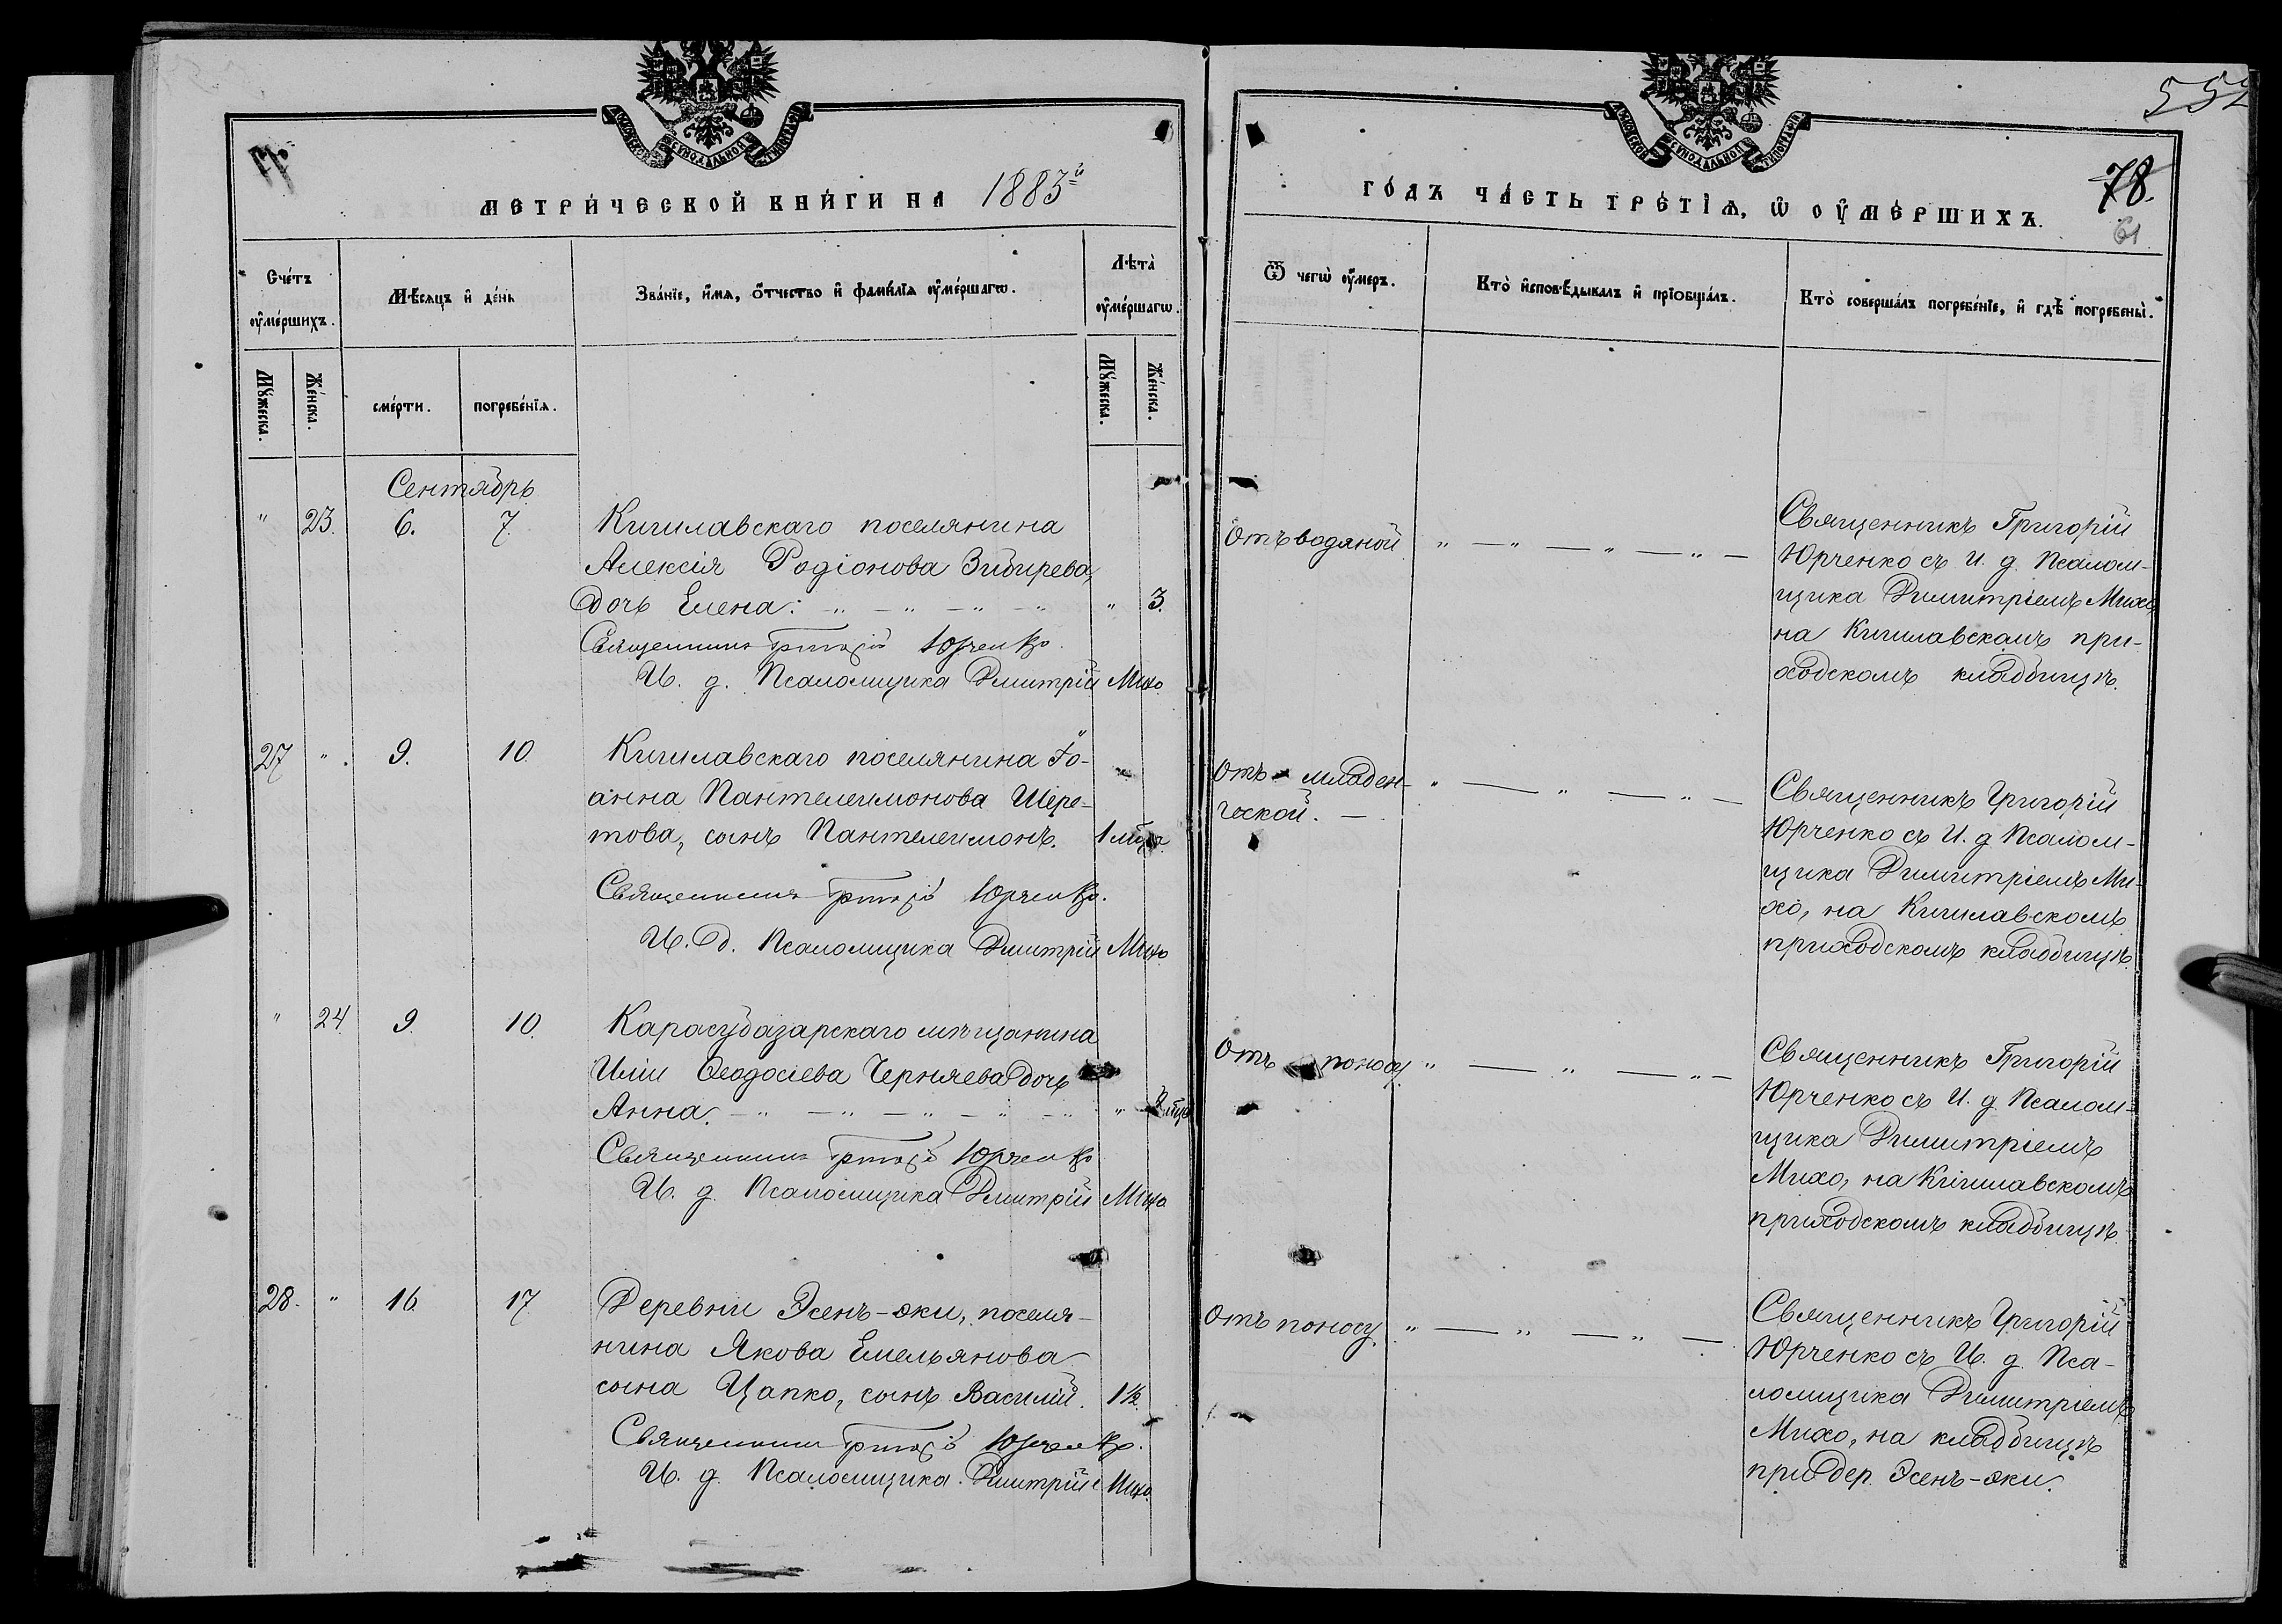 552
МЕТРИ́ЧЕСКОЙ КНИ́ГИ НА 1883й
ГО́ДЪ ЧА́СТЬ ТРЕ́ТІѦ, Ѡ҆ ОУ҆МЕ́РШИХЪ.
78.
61
Счетъ оу҆ме́ршихъ.
Мѣ́сяцъ и҆ де́нь
Зва́нїе, и҆́мѧ, ѻ҆́тчество и҆ фамѝлїѧ оу҆ме́ршагѡ.
Лѣта̀ оу҆ме́ршагѡ.
Ѿ чегѡ̀ оу҆́меръ.
Кто̀ и҆сповѣ́дывалъ и҆ прїобща́лъ.
Кто̀ соверша́лъ погребе́нїе, и҆ гдѣ̀ погребены̀.
Мꙋ́жеска.
Же́нска.
сме́рти.
погребе́нїѧ.
Мꙋ́жеска.
Же́нска.
Сентябрь
" 23. 6. 7. Кишлавскаго поселянина
Алексія Родіонова Зибирева,
дочь Елена: " 3.
Священникъ Григорій Юрченко.
И. д. Псаломщика Дмитрій Михо
Отъ водяной
Священникъ Григорій
Юрченко съ И. д. Псалом-
щика Димитріемъ Михо,
на Кишлавскомъ при-
ходскомъ кладбищѣ.
27 " 9. 10. Кишлавскаго поселянина Іо-
анна Пантелеимонова Шере-
това, сынъ Пантелеимонъ. 1 мѣся.
Священникъ Григорій Юрченко.
И. д. Псаломщика Дмитрій Михо
Отъ младен-
ческой.
Священникъ Григорій
Юрченко съ И. д. Псалом-
щика Димитріемъ Ми-
хо, на Кишлавскомъ
приходскомъ кладбищѣ.
" 24 9. 10. Карасубазарскаго мѣщанина
Иліи Ѳеодосіева Черняева дочь
Анна. "
Священникъ Григорій Юрченко
И. д. Псаломщика Дмитрій Михо
Отъ поносу
Священникъ Григорій
Юрченко съ И. д. Псалом-
щика Димитріемъ
Михо, на Кишлавскомъ
приходскомъ кладбищѣ.
28. " 16. 17 Деревни Эсенъ-эки, поселя-
нина Якова Емельянова
сына Цапко, сынъ Василій. 1½.
Священникъ Григорій Юрченко.
И. д. Псаломщика Дмитрій Михо.
Отъ поносу.
Священникъ Григорій
Юрченко съ И. д. Пса-
ломщика Димитріемъ
Михо, на кладбищѣ
при дер. Эсенъ-эки.